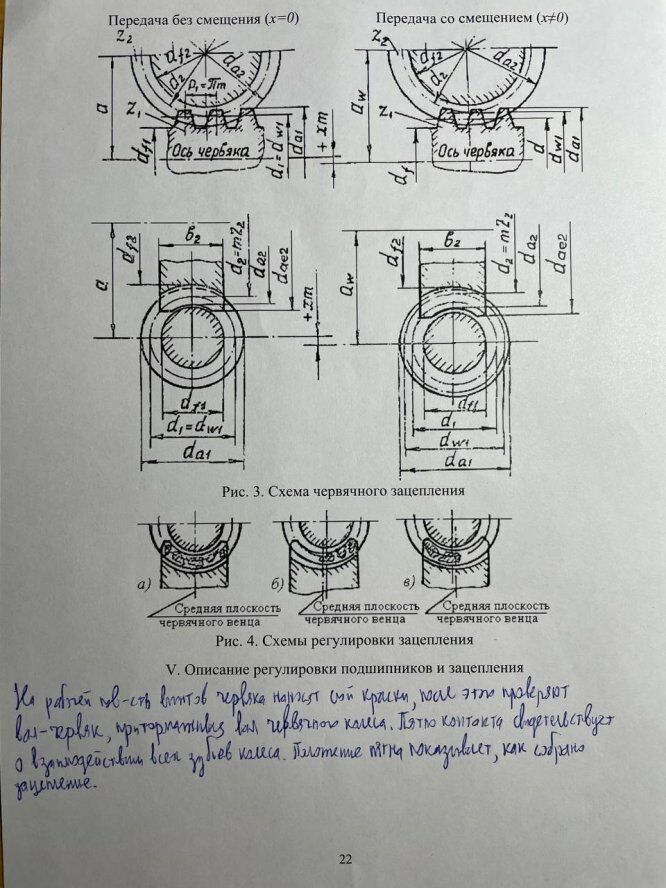 Передача без смещения (x=0)
Передача со смещением (x≠0)
z₂
d_f2
d₂
d_a2
P₁=πm
a
z₁
d_f1
Ось червяка
+xm
d₁=d_w1
d_a1
z₂
d_f2
d₂
d_a2
a_w
z₁
d_f
Ось червяка
+xm
d
d_w1
d_a1
a
d_f2
b₂
d₂=mz₂
d_a2
d_ae2
+xm
d_f1
d₁=d_w1
d_a1
a_w
d_f2
b₂
d₂=mz₂
d_a2
d_ae2
d_f1
d₁
d_w1
d_a1
Рис. 3. Схема червячного зацепления
а)
б)
в)
Средняя плоскость
червячного венца
Средняя плоскость
червячного венца
Средняя плоскость
червячного венца
Рис. 4. Схемы регулировки зацепления
V. Описание регулировки подшипников и зацепления
На рабочей пов-сть витков червяка наносят слой краски, после этого проверяют
вал-червяк, притормаживая вал червячного колеса. Пятно контакта свидетельствует
о взаимодействии всех зубьев колеса. Положение пятна показывает, как собрано
зацепление.
22